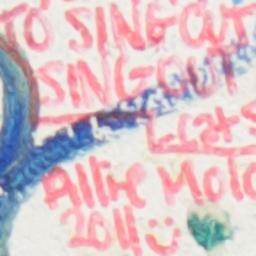 TO SING OUT
SING OUT
(cat S
Allie Moto
2011 :)